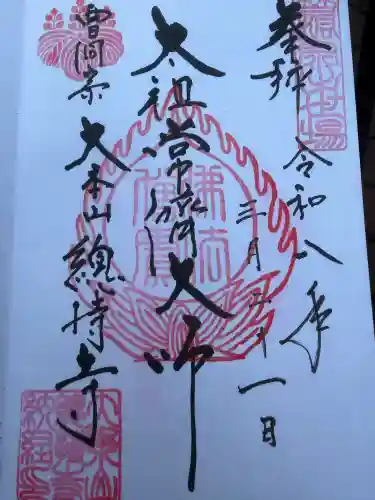 奉拝
令和八年
三月三十一日
太祖常済大師
曹洞宗
大本山 總持寺